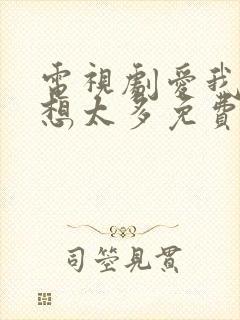 電視劇愛我
想太多免費
司塋見貫